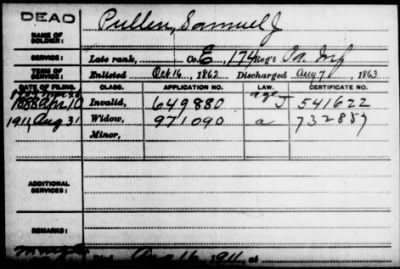 DEAD
Pullen, Samuel J
NAME OF SOLDIER:
SERVICE: Late rank, Co. E, 174 Reg't Pa. Inf
TERM OF SERVICE: Enlisted Oct 16, 1862 Discharged Aug 7, 1863
DATE OF FILING. CLASS. APPLICATION NO. LAW. CERTIFICATE NO.
1888 Apr 10 Invalid, 649880 age J 541622
1911, Aug 31 Widow, 971090 a 732887
Minor,
ADDITIONAL SERVICES:
REMARKS:
Aug 16, 1911, at